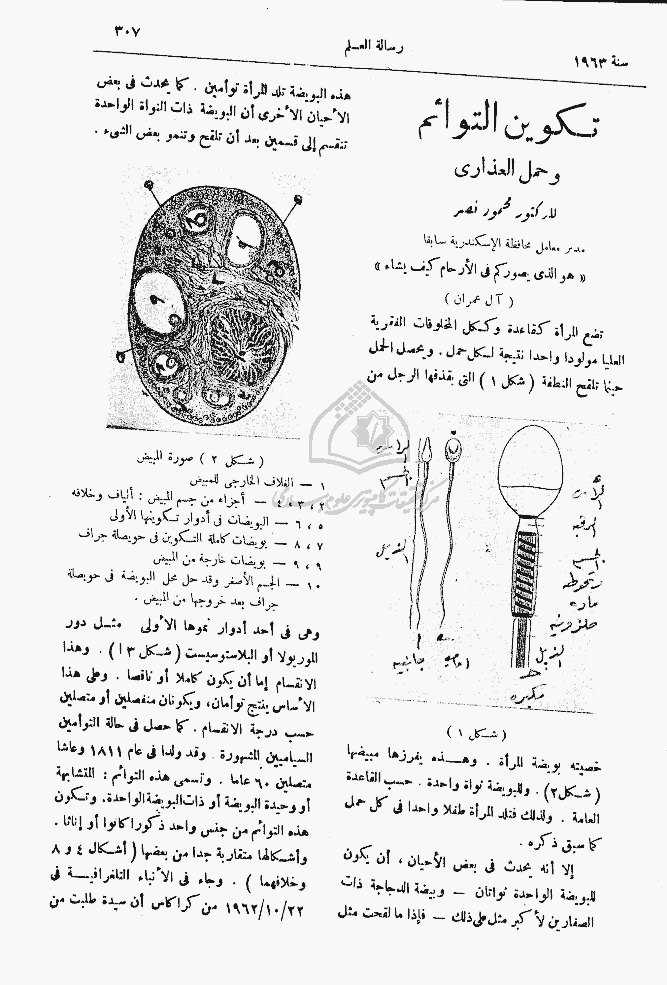 سنة ١٩٦٣
رسالة العلم
٣٠٧
تكوين التوائم
وحمل العذارى
للدكتور محمود نصر
مدير معامل محافظة الإسكندرية سابقا
« هو الذى يصوركم فى الأرحام كيف يشاء »
( آل عمران )
تضع المرأة كقاعدة وككل المخلوقات الفقرية
العليا مولودا واحدا نتيجة لكل حمل . ويحصل الحمل
حينما تلقح النطفة ( شكل ١ ) التى يقذفها الرجل من
الرأس
الجسم
الذيل
جانبية
أمامية
الرأس
الرقبة
الجسم
مادة
حلزونية
الذيل
مكبرة
( شكل ١ )
خصيته بويضة المرأة . وهذه يفرزها مبيضها
( شكل٢ ) . وللبويضة نواة واحدة . حسب القاعدة
العامة . ولذلك فتلد المرأة طفلا واحدا فى كل حمل
كما سبق ذكره .
إلا أنه يحدث فى بعض الأحيان ، أن يكون
للبويضة الواحدة نواتان — وبيضة الدجاجة ذات
الصفارين لأكبر مثل على ذلك — فإذا ما لقحت مثل
هذه البويضة تلد المرأة توأمين . كما يحدث فى بعض
الأحيان الأخرى أن البويضة ذات النواة الواحدة
تنقسم إلى قسمين بعد أن تلقح وتنمو بعض الشىء .
( شكل ٢ ) صورة المبيض
١ — الغلاف الخارجى للمبيض
٢ ، ٣ ، ٤ — أجزاء من جسم المبيض : ألياف وخلافه
٥ ، ٦ — البويضات فى أدوار تكوينها الأولى
٧ ، ٨ — بويضات كاملة التكوين فى حويصلة جراف
٩ ، ٩ — بويضات خارجة من المبيض
١٠ — الجسم الأصفر وقد حل محل البويضة فى حويصلة
جراف بعد خروجها من المبيض .
وهى فى أحد أدوار نموها الأولى مثل دور
الموريولا أو البلاستوسيست ( شكل ٣ ا ) . وهذا
الانقسام إما أن يكون كاملا أو ناقصا . وعلى هذا
الأساس ينتج توأمان، ويكونان منفصلين أو متصلين
حسب درجة الانقسام . كما حصل فى حالة التوأمين
السياميين المشهورة . وقد ولدا فى عام ١٨١١ وعاشا
متصلين ٦٠ عاما . وتسمى هذه التوائم : المتشابهة
أو وحيدة البويضة أو ذات البويضة الواحدة. وتكون
هذه التوائم من جنس واحد ذكورا كانوا أو إناثا .
وأشكالها متقاربة جدا من بعضها ( أشكال ٤ و ٨
وخلافهما ) . وجاء فى الأنباء التلغرافية فى
١٩٦٢/١٠/٢٢ من كراكاس أن سيدة طلبت من